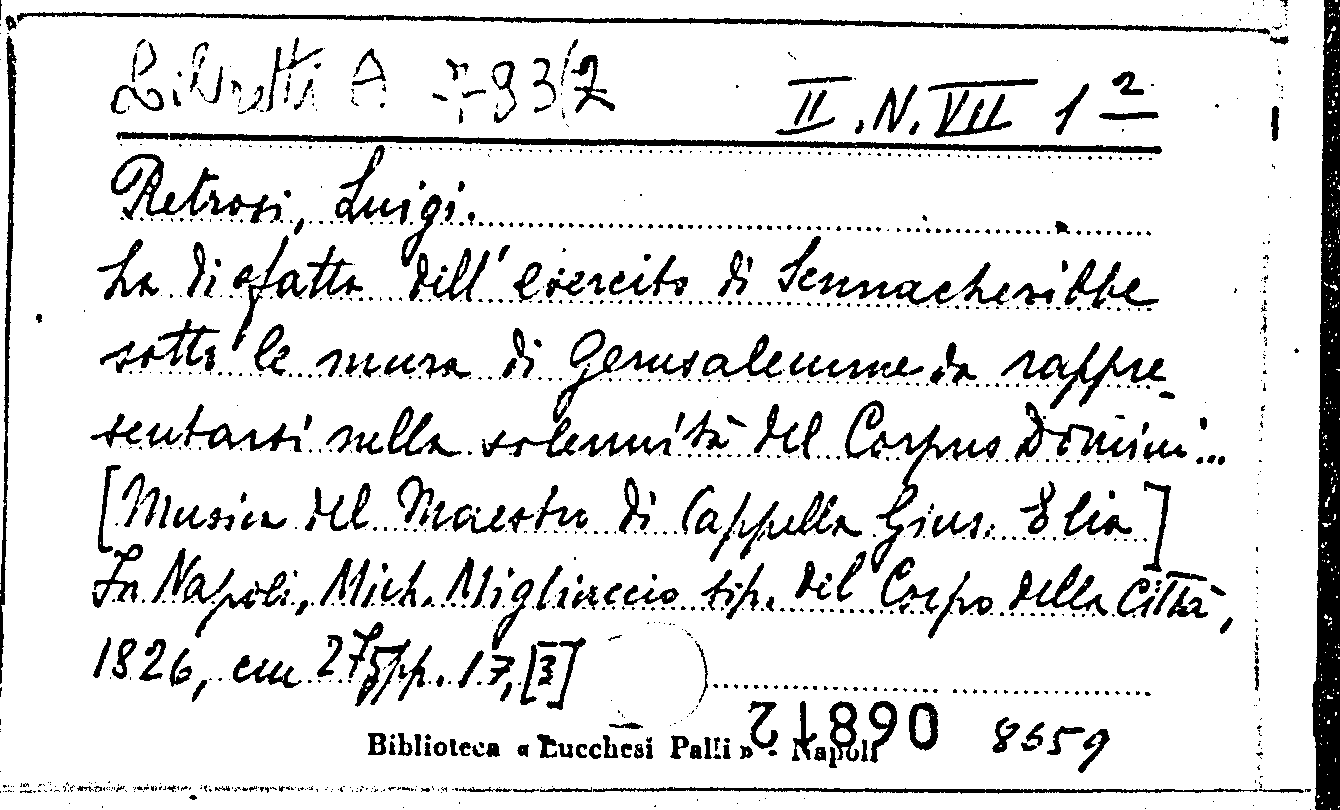 Libretti A 793/2 II.N.VII 1 2
Petrosi, Luigi.
La disfatta dell'esercito di Sennacheribbe
sotto le mura di Gerusalemme da rappre-
sentarsi nella solennità del Corpus Domini...
[Musica del Maestro di Cappella Gius. Elia]
In Napoli, Mich. Migliaccio tip. del Corpo della Città,
1826, cm 27, pp. 17, [3]
21890 8659
Biblioteca « Lucchesi Palli » - Napoli